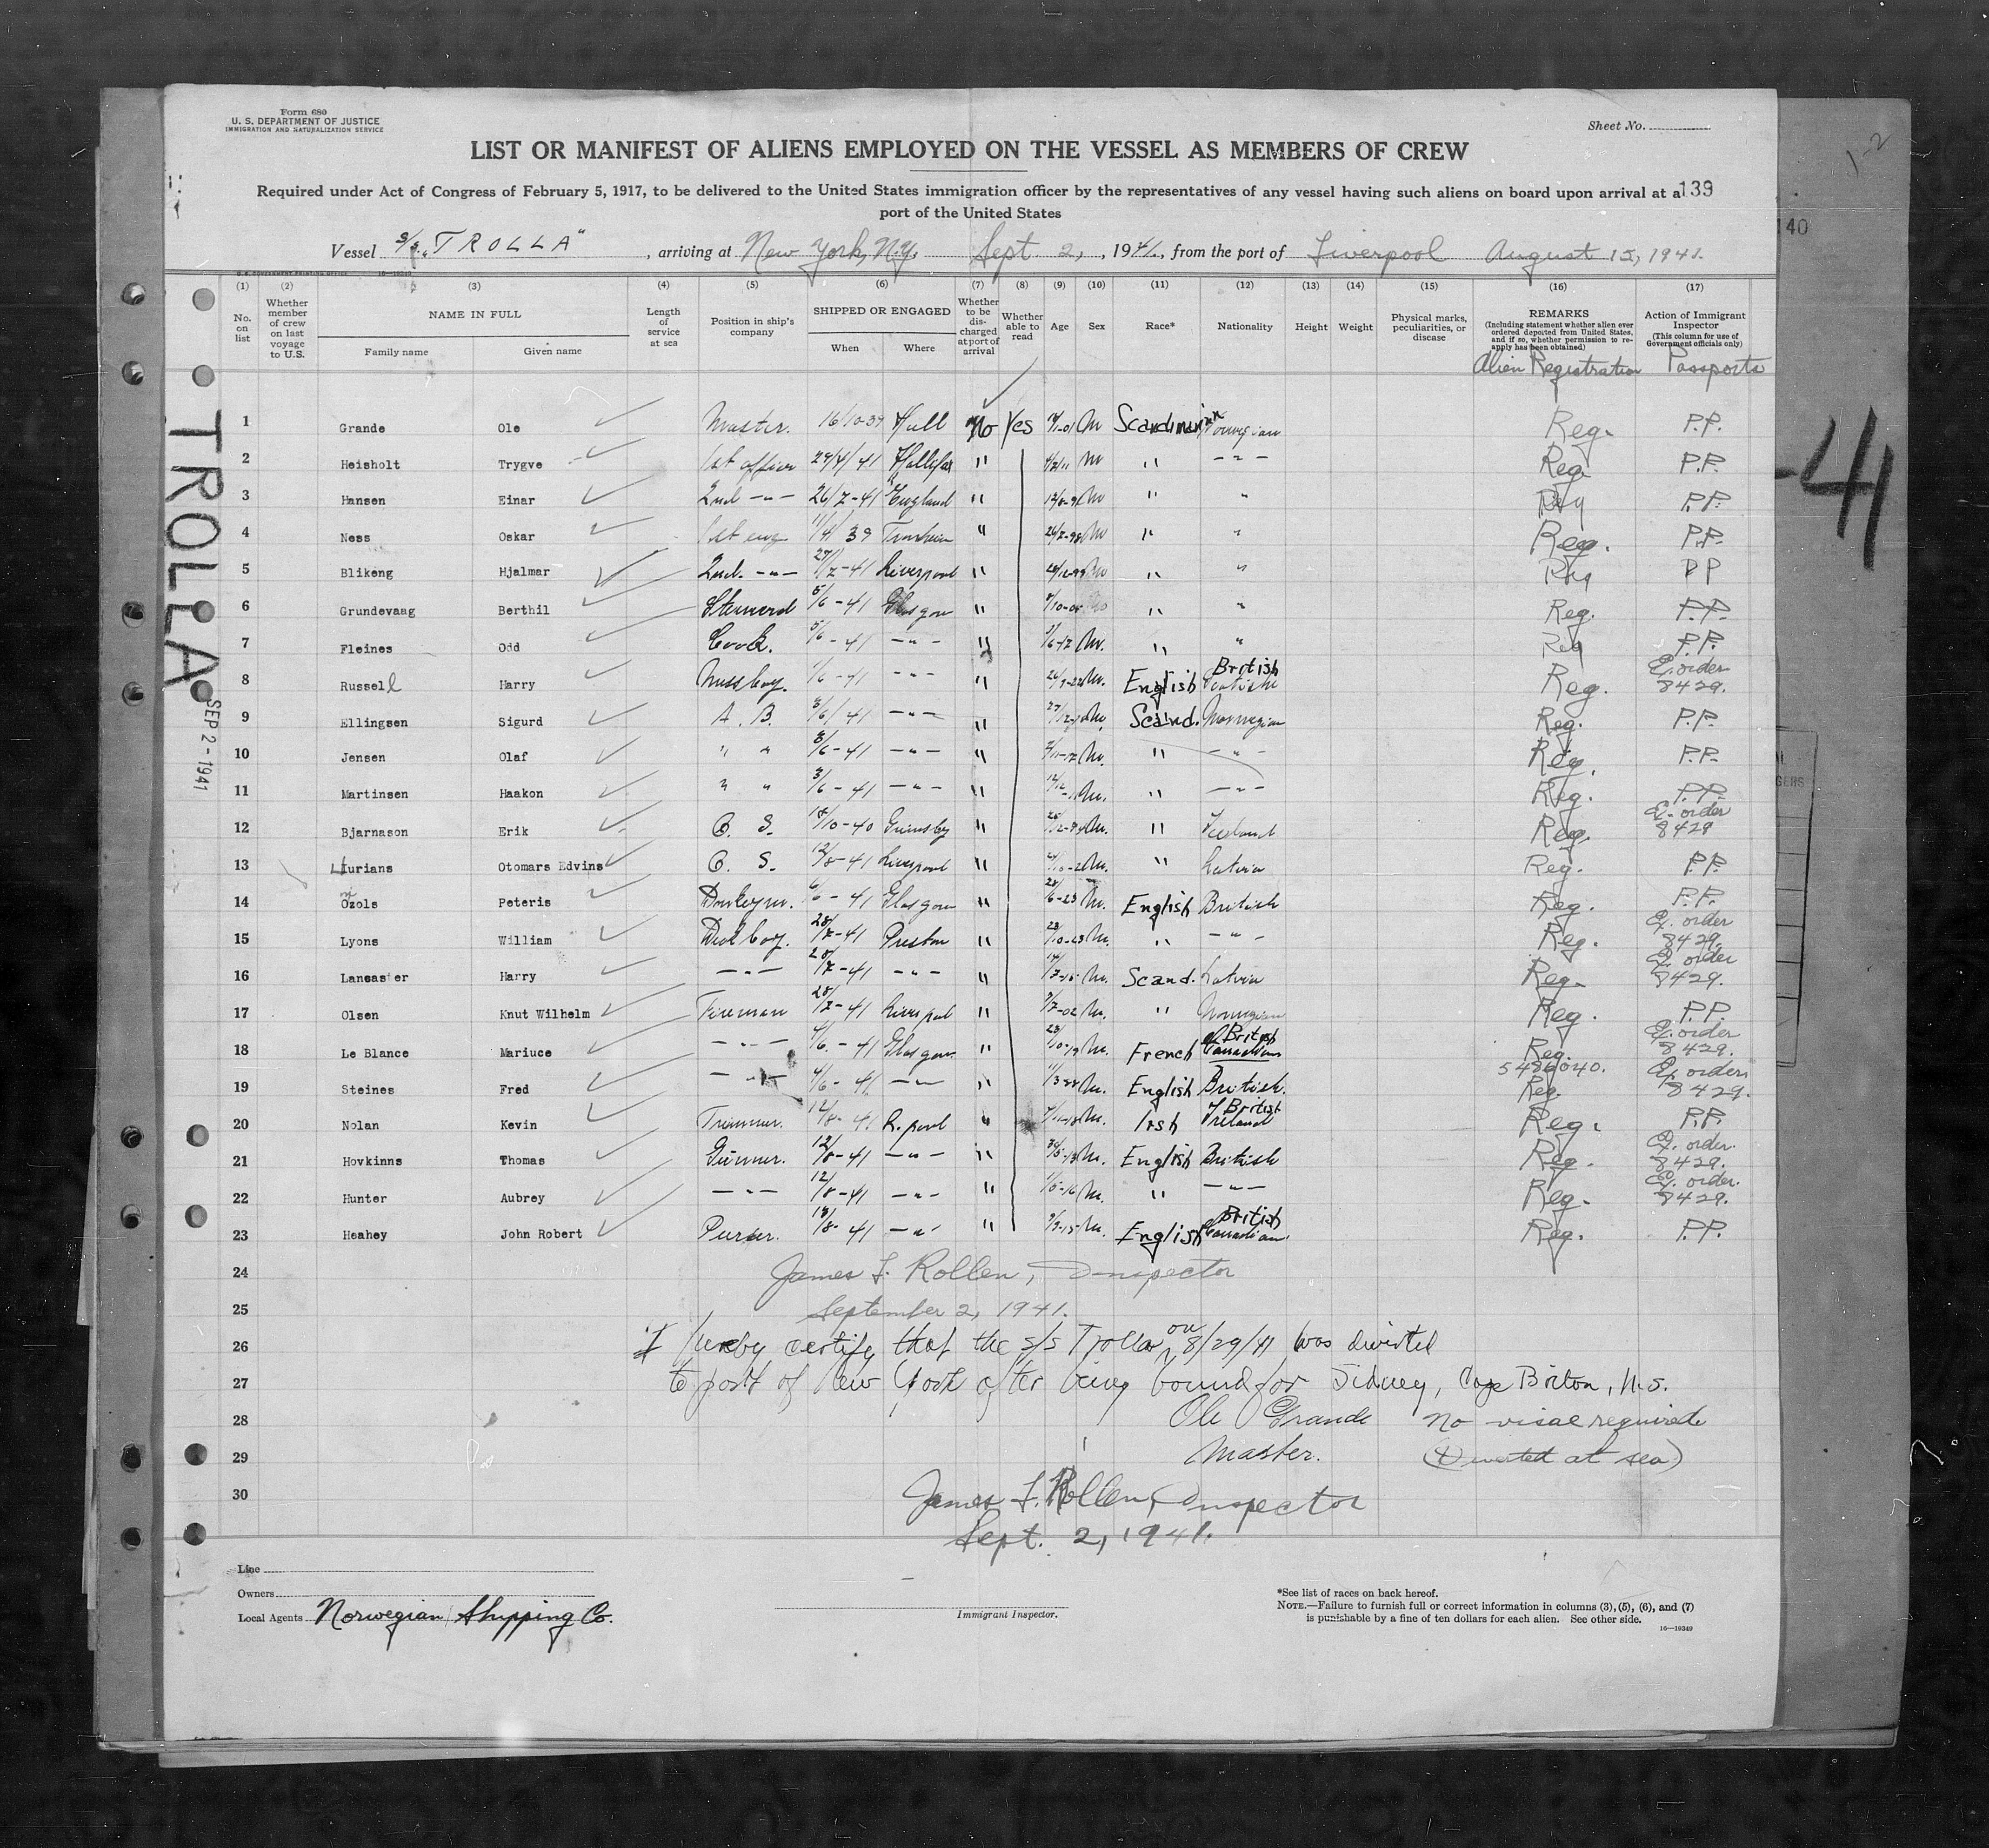 Form 680
U. S. DEPARTMENT OF JUSTICE
IMMIGRATION AND NATURALIZATION SERVICE
Sheet No.
LIST OR MANIFEST OF ALIENS EMPLOYED ON THE VESSEL AS MEMBERS OF CREW
Required under Act of Congress of February 5, 1917, to be delivered to the United States immigration officer by the representatives of any vessel having such aliens on board upon arrival at a
port of the United States
139
140
Vessel S/S. "TROLLA" , arriving at New York, N.Y. Sept 2, , 1941, from the port of Liverpool August 15, 1941.
(1) (2) (3) (4) (5) (6) (7) (8) (9) (10) (11) (12) (13) (14) (15) (16) (17)
No. on list
Whether member of crew on last voyage to U.S.
NAME IN FULL
Family name Given name
Length of service at sea
Position in ship's company
SHIPPED OR ENGAGED
When Where
Whether to be discharged at port of arrival
Whether able to read
Age Sex Race* Nationality Height Weight
Physical marks, peculiarities, or disease
REMARKS
(Including statement whether alien ever ordered deported from United States, and if so, whether permission to reapply has been obtained)
Alien Registration
Action of Immigrant Inspector
(This column for use of Government officials only)
Passports
1 Grande Ole Master. 16/10-39 Hull No Yes M Norwegian Reg. P.P.
2 Heisholt Trygve 1st officer 29/4/41 Hallifax " M " -"- Reg P.P.
3 Hansen Einar 2nd -"- 26/7-41 England " M " " Reg P.P.
4 Ness Oskar 1st eng 11/4 39 " M " " Reg. P.P.
5 Blikeng Hjalmar 2nd. -"- 27/7-41 Liverpool " M " " Reg P P
6 Grundevaag Berthil 5/6-41 Glasgow " " " Reg. P.P.
7 Fleines Odd Cook. 5/6-41 -"- " M. " " Reg P.P.
8 Russell Harry Messboy. /6-41 -"- " M. English British Reg. Ex. order 8429.
9 Ellingsen Sigurd A. B. 3/6/41 -"- " M. Scand. Norwegian Reg. P.P.
10 Jensen Olaf " " 3/6-41 -"- " M. " -"- Reg. P.P.
11 Martinsen Haakon " " 3/6-41 -"- " M. " -"- Reg. P.P.
12 Bjarnason Erik O. S. 18/10-40 Grimsby " M. " Iceland Reg. Ex. order 8429
13 urians Otomars Edvins O. S. 12/8-41 Liverpool " M. " Latvia Reg. P.P.
14 Ozols Peteris Donkeym. 6/6-41 Glasgow " M. English British Reg. P.P.
15 Lyons William Deckboy. 28/7-41 Preston " M. " -"- Reg. Ex. order 8429.
16 Lancaster Harry -"- 28/7-41 -"- " M. Scand. Latvia Reg. Ex. order 8429.
17 Olsen Knut Wilhelm Fireman 28/7-41 Liverpool " 3/7-02 M. " Norwegian Reg. P.P.
18 Le Blance Mariuce -"- 4/6-41 Glasgow " M. French British Canadian Reg. Ex. order 8429.
19 Steines Fred -"- 4/6-41 -"- " M. English British. 5486040. Reg. Ex. order 8429.
20 Nolan Kevin Trimmer. 12/8-41 L.pool " M. Irsh British Ireland Reg. P.P.
21 Hovkinns Thomas Gunner. 12/8-41 -"- " M. English British Reg. Ex. order. 8429.
22 Hunter Aubrey -"- 12/8-41 -"- " M. " -"- Reg. Ex. order. 8429.
23 Heahey John Robert Purser. 18/8-41 -"- " M. English British Canadian Reg. P.P.
24 James F. Rollen, Inspector
25 September 2, 1941.
26 I hereby certify that the s/s Trolla on 8/29/41 was diverted
27 to port of New York after being bound for Sidney, Cape Briton, N.S.
28 Ole Grande No visae required
29 Master. (Diverted at sea)
30 James F. Rollen, Inspector
Sept. 2, 1941.
Line
Owners
Local Agents Norwegian Shipping Co.
Immigrant Inspector.
*See list of races on back hereof.
NOTE.—Failure to furnish full or correct information in columns (3), (5), (6), and (7)
is punishable by a fine of ten dollars for each alien. See other side.
16—19349
TROLLA
SEP 2 - 1941
-41